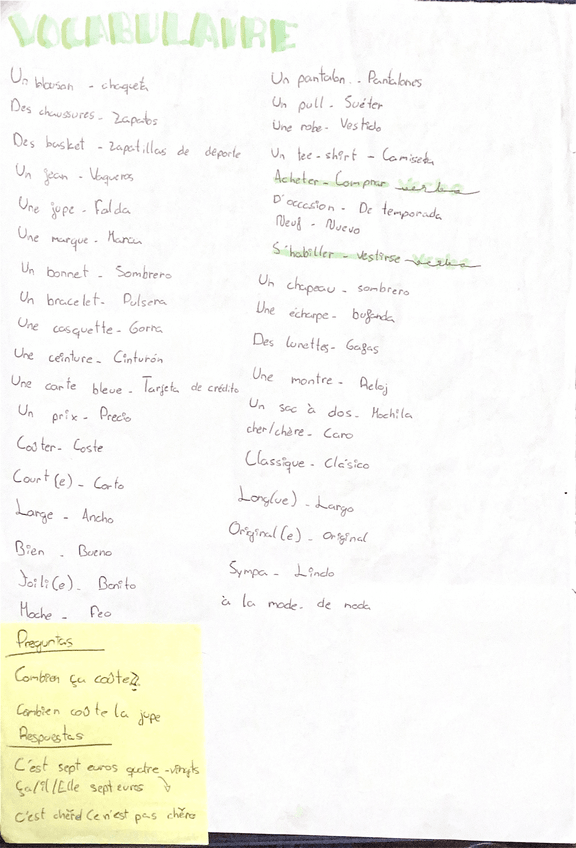 VOCABULAIRE
Un blouson - chaqueta
Des chaussures - Zapatos
Des basket - Zapatillas de deporte
Un jean - Vaqueros
Une jupe - Falda
Une marque - Marca
Un bonnet - Sombrero
Un bracelet - Pulsera
Une casquette - Gorra
Une ceinture - Cinturón
Une carte bleue - Tarjeta de crédito
Un prix - Precio
Coûter - Coste
Court(e) - Corto
Large - Ancho
Bien - Bueno
Joili(e) - Bonito
Moche - Feo
Un pantalon - Pantalones
Un pull - Suéter
Une robe - Vestido
Un tee-shirt - Camiseta
Acheter - Comprar verbo
D'occasion - De temporada
Neuf - Nuevo
S'habiller - vestirse verbo
Un chapeau - sombrero
Une écharpe - bufanda
Des lunettes - Gafas
Une montre - Reloj
Un sac à dos - Mochila
cher/chère - Caro
Classique - Clásico
Long(ue) - Largo
Original(e) - original
Sympa - Lindo
à la mode - de moda
Preguntas
Combien ça coûte?
Combien coûte la jupe
Respuestas
C'est sept euros quatre-vingts
Ça/il/Elle sept euros
C'est chère/Ce n'est pas chère